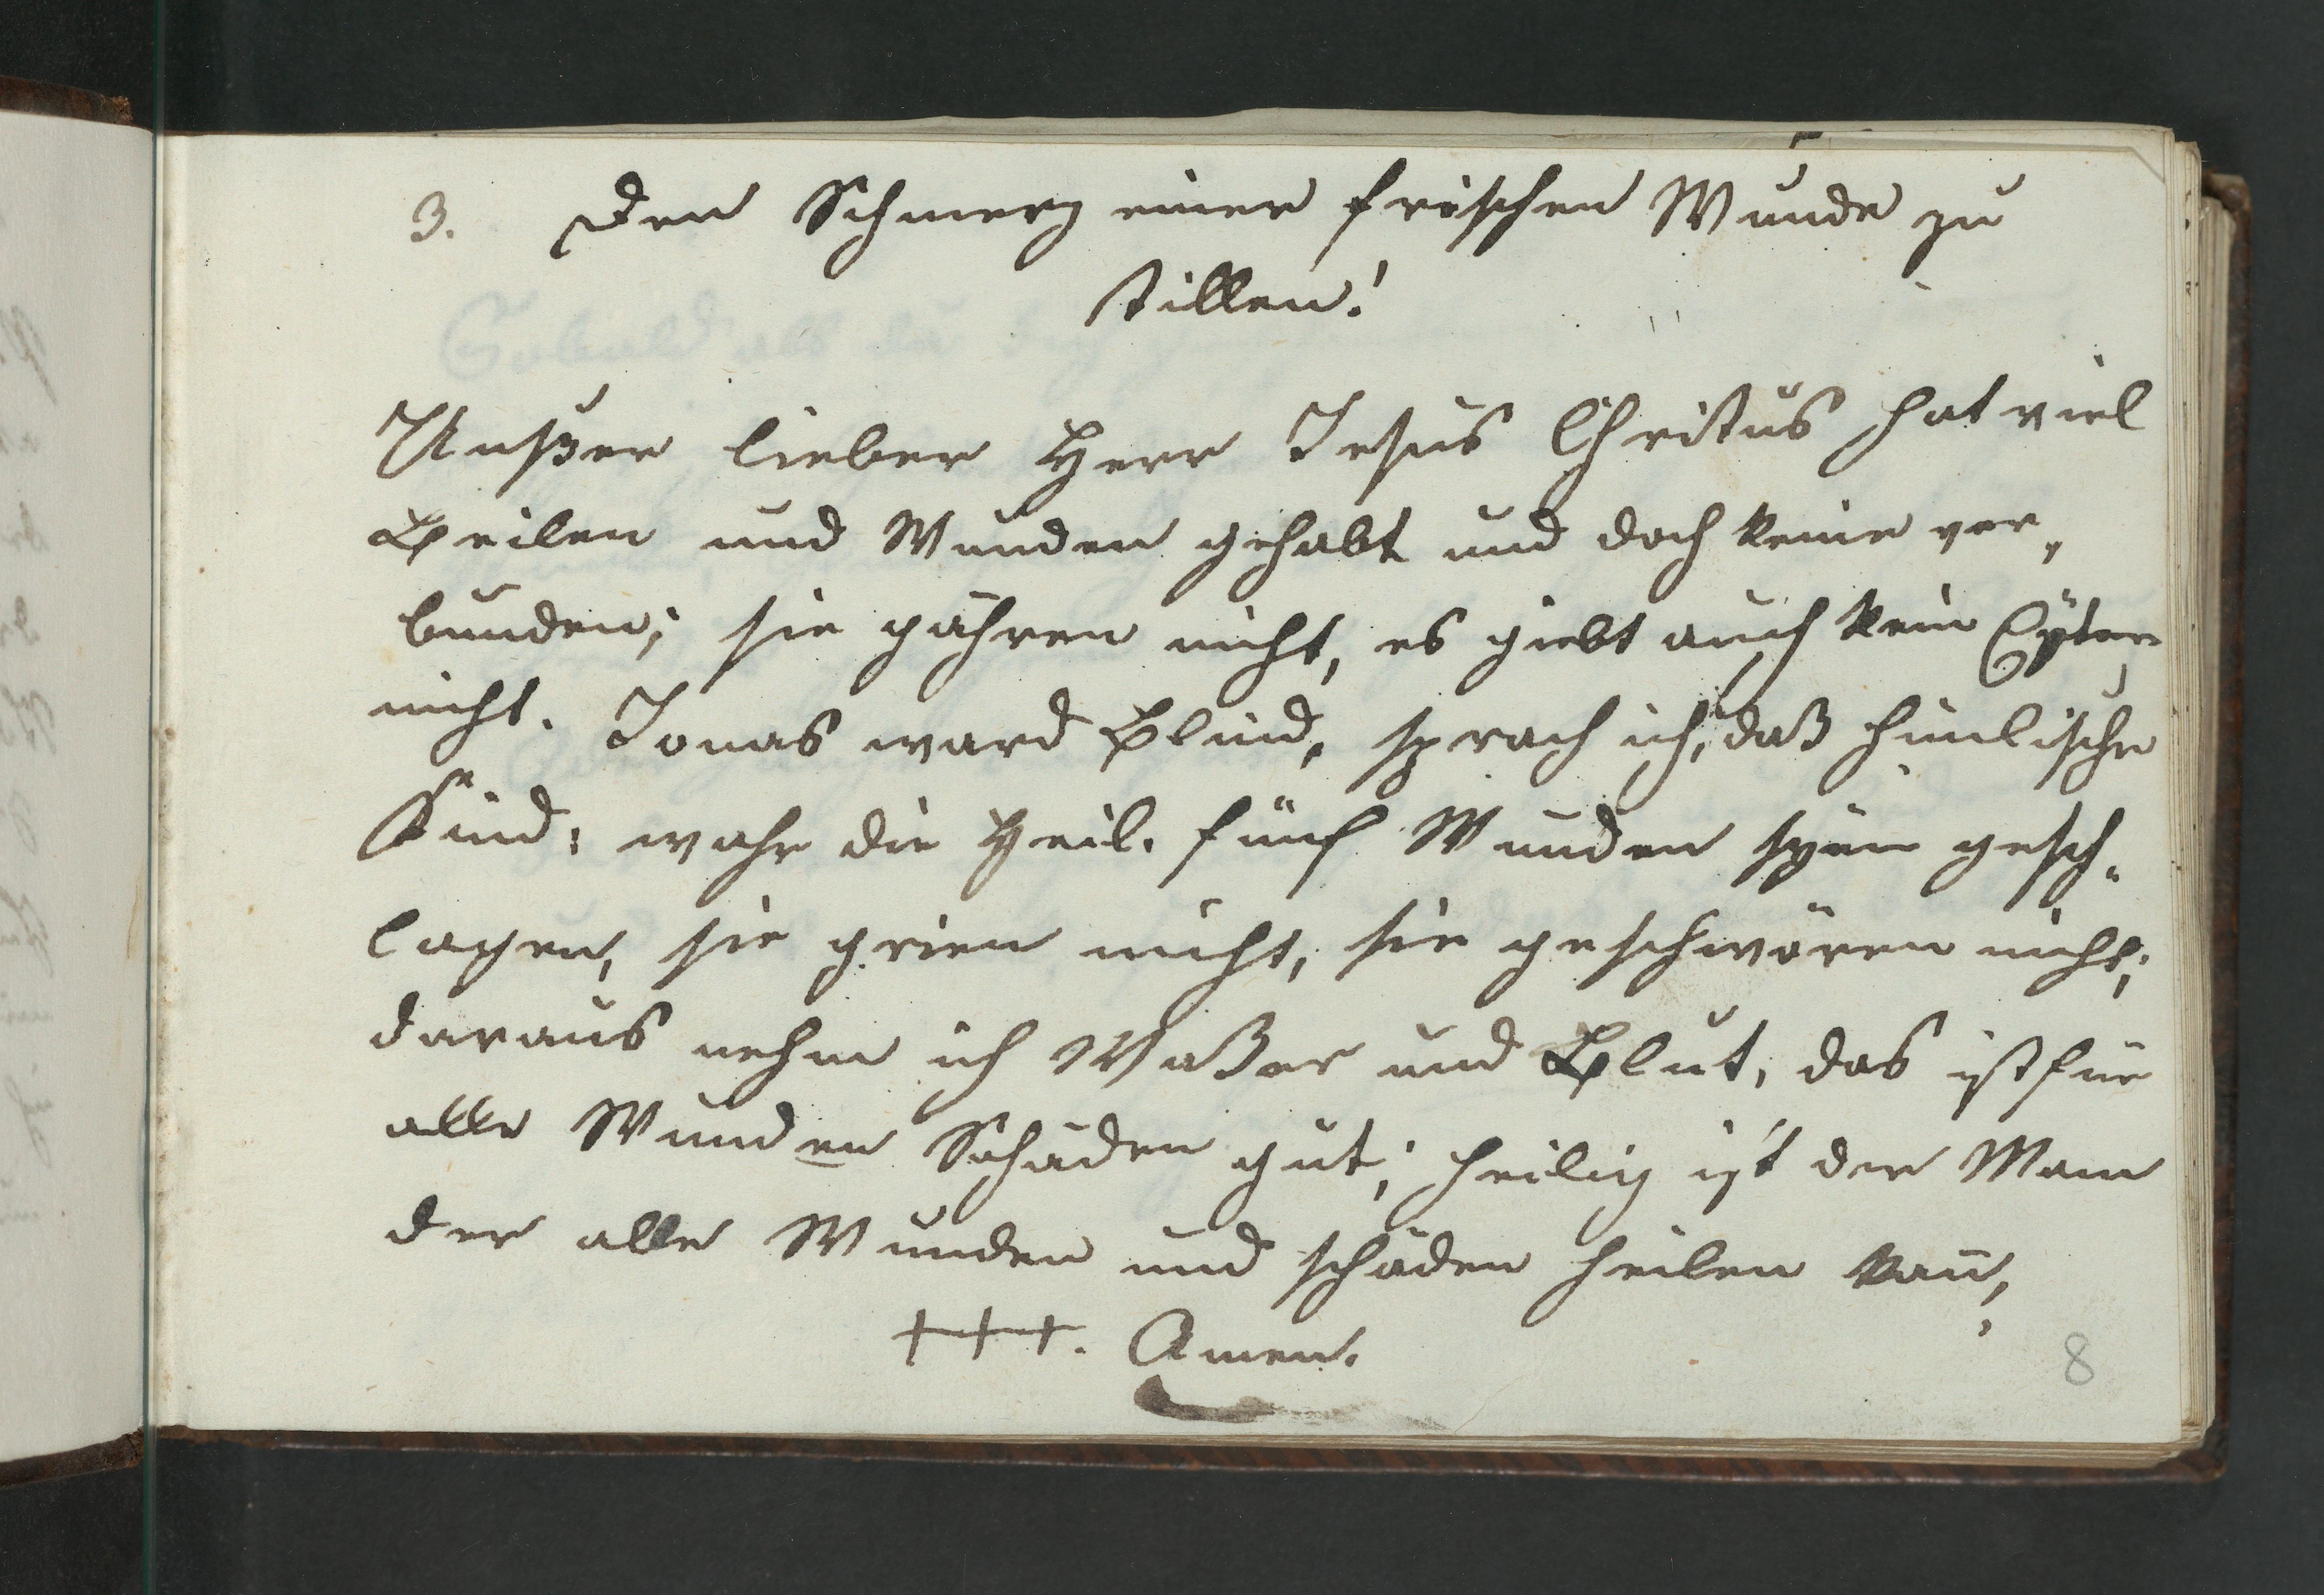 3. Den Schmerz einer frischen Wunde zu
stillen!
Unßer lieber Herr Jesus Christus hat viel
Beilen und Wunden gehabt und doch keine ver„
bunden; sie gähren nicht, es giebt auch kein Eyter
nicht. Jonas ward Blind, sprach ich, daß himlische
Kind: wahr die Heil. fünf Wunden syn gesch„
lagen, sie grien nicht, sie geschwören nicht;
daraus nehm ich Waßer und Blut, das ist für
alle Wunden Schäden gut; heilig ist der Mann
der alle Wunden und schäden heilen kan̄,
+++. Amen.
8